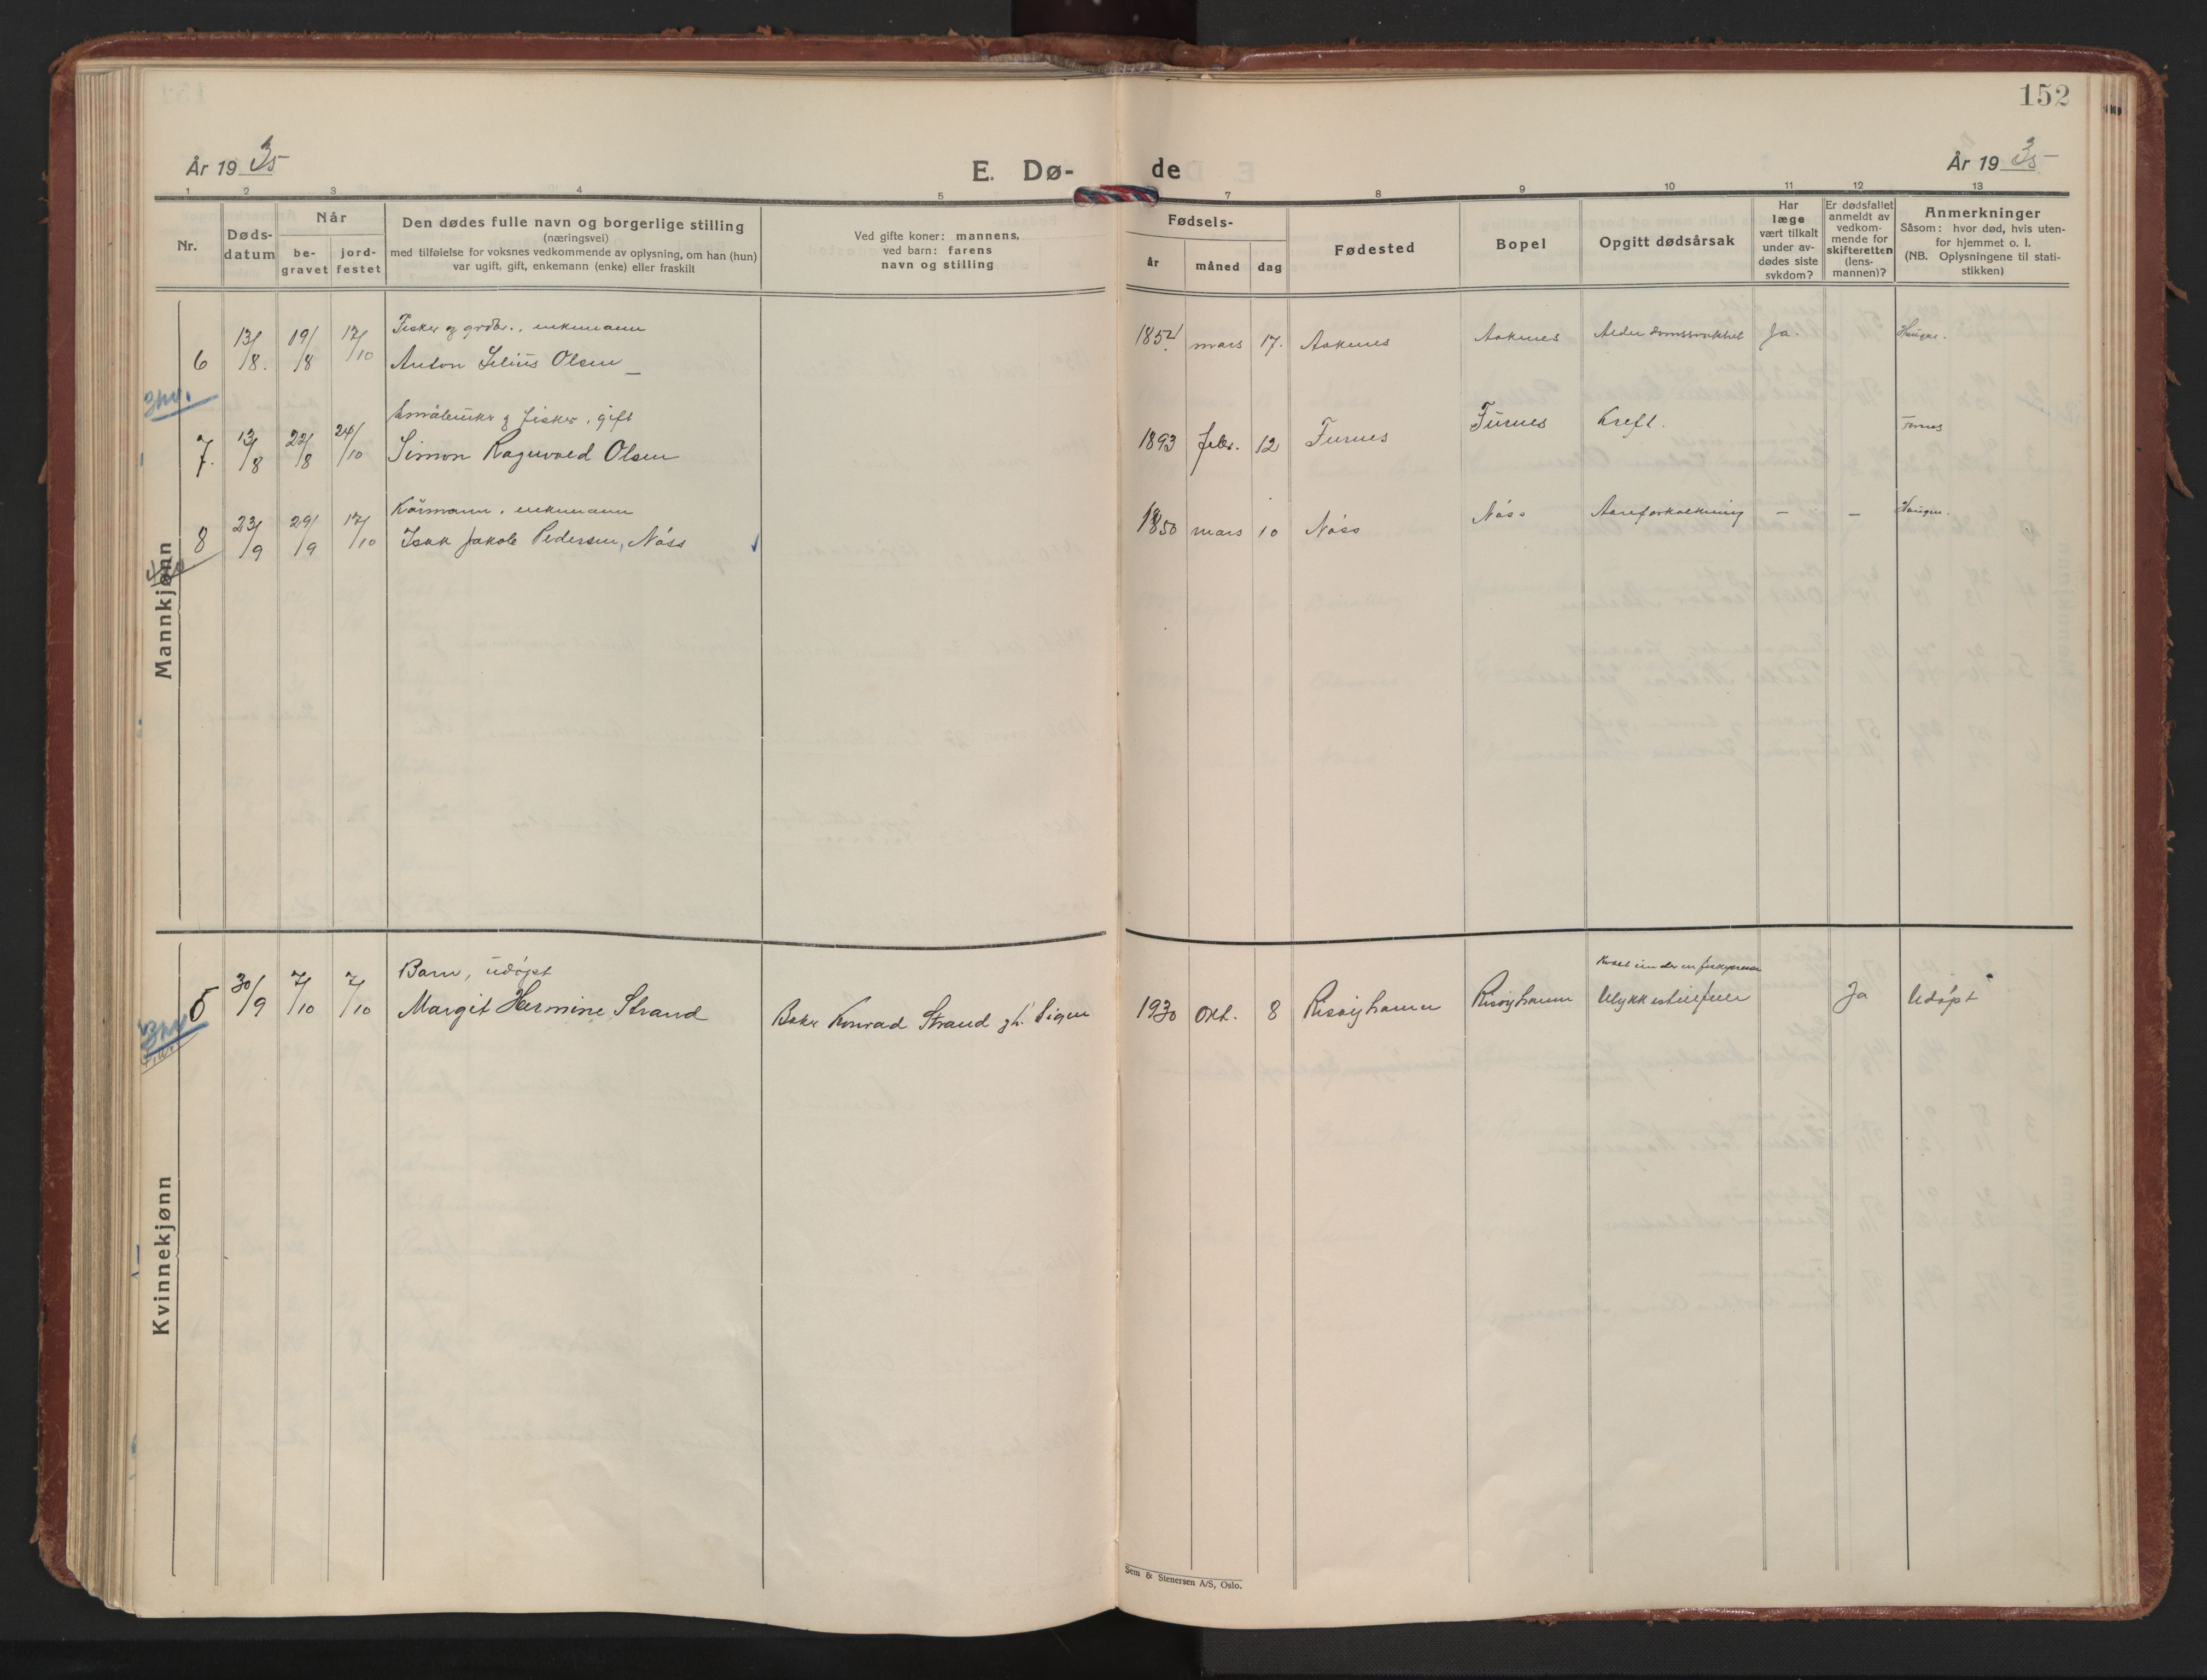 152
År 19 35
E. Dø-
de
År 19 35
1 2 3 4 5 7 8 9 10 11 12 13
Nr.
Døds-
datum
Når
be-
gravet
jord-
festet
Den dødes fulle navn og borgerlige stilling
(næringsvei)
med tilføielse for voksnes vedkommende av oplysning, om han (hun)
var ugift, gift, enkemann (enke) eller fraskilt
Ved gifte koner: mannens,
ved barn: farens
navn og stilling
Fødsels-
år
måned
dag
Fødested
Bopel
Opgitt dødsårsak
Har
læge
vært tilkalt
under av-
dødes siste
sykdom?
Er dødsfallet
anmeldt av
vedkom-
mende for
skifteretten
(lens-
mannen)?
Anmerkninger
Såsom: hvor død, hvis uten-
for hjemmet o. l.
(NB. Oplysningene til stati-
stikken)
Mannkjønn
Fisker og grdbr., enkemann
6 13/8. 19/8 17/10 Anton Selius Olsen 1852 mars 17. Aaknes Aaknes Alderdomssvakhet Ja. Haugnes.
Småbruker og fisker, gift
7. 13/8 22/8 24/10 Simon Ragnvald Olsen 1893 febr. 12 Furnes Furnes Kreft.
Kårmann, enkemann
8 23/9 29/9 17/10 Isak Jakob Pedersen, Nöss 1850 mars 10 Nöss Nöss Aareforkalkning - -
Kvinnekjønn
Barn, udöpt
5 30/9 7/10 7/10 Margit Hermine Strand Baker Konrad Strand 1930 Okt. 8 Risöyhamn Risöyhamn Ulykkestilfelle Ja Udöpt
Sem & Stenersen A/S, Oslo.